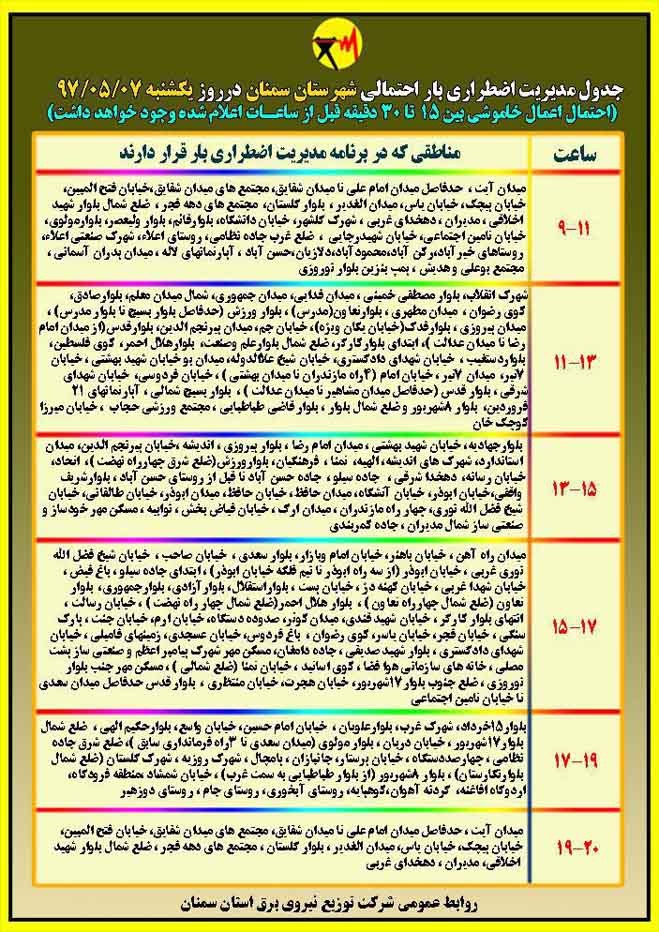 جدول مدیریت اضطراری بار احتمالی شهرستان سمنان درروز یکشنبه ۹۷/۰۵/۰۷
(احتمال اعمال خاموشی بین ۱۵ تا ۳۰ دقیقه قبل از ساعـات اعلام شده وجود خواهد داشت)
ساعت
مناطقی که در برنامه مدیریت اضطراری بار قرار دارند
۹-۱۱
میدان آیت ، حدفاصل میدان امام علی تا میدان شقایق، مجتمع های میدان شقایق،خیابان فتح المبین،
خیابان پیچک، خیابان یاس، میدان الغدیر ، بلوار گلستان، مجتمع های دهه فجر ، ضلع شمال بلوار شهید
اخلاقی ، مدیران ، دهخدای غربی ، شهرک گلشهر، خیابان دانشگاه، بلوارقائم، بلوار ولیعصر، بلوارمولوی،
خیابان تامین اجتماعی، خیابان شهیدرجایی ، ضلع غرب جاده نظامی، روستای اعلاء، شهرک صنعتی اعلاء،
روستاهای خیرآباد،رکن آباد،محمودآباد،دلازیان،حسن آباد ، آپارتمانهای لاله ، میدان پدران آسمانی ،
مجتمع بوعلی وهدیش ، پمپ بنزین بلوار نوروزی
۱۱-۱۳
شهرک انقلاب، بلوار مصطفی خمینی ، میدان فدایی، میدان جمهوری، شمال میدان معلم، بلوارصادق،
کوی رضوان ، میدان مطهری ، بلوارتعاون(مدرس) ، بلوار ورزش (حدفاصل بلوار بسیج تا بلوار مدرس) ،
میدان پیروزی ، بلوارفدک(خیابان یگان ویژه)، خیابان جم، میدان پیرنجم الدین، بلوارقدس(از میدان امام
رضا تا میدان عدالت )، ابتدای بلوارکارگر، ضلع شمال بلوارعلم وصنعت، بلوارهلال احمر، کوی فلسطین،
بلواردستغیب ، خیابان شهدای دادگستری، خیابان شیخ علاالدوله، میدان بو خیابان شهید بهشتی ، خیابان
۷تیر، میدان ۷تیر، خیابان امام (۴راه مازندران تا میدان بهشتی ) ، خیابان فردوسی، خیابان شهدای
شرقی ، بلوار قدس (حدفاصل میدان مشاهیر تا میدان عدالت ) ، بلوار بسیج شمالی ، آپارتمانهای ۲۱
فروردین، بلوار ۸شهریور و ضلع شمال بلوار ، بلوار قاضی طباطبایی ، مجتمع ورزشی حجاب ، خیابان میرزا
کوچک خان
۱۳-۱۵
بلوارجهادیه، خیابان شهید بهشتی ، میدان امام رضا ، بلوار پیروزی ، اندیشه ،خیابان پیرنجم الدین، میدان
استاندارد، شهرک های اندیشه، الهیه، تمنا ، فرهنگیان، بلوارورزش(ضلع شرق چهارراه نهضت ) ، اتحاد،
خیابان رسانه، دهخدا شرقی ، جاده سیلو ، جاده حسن آباد تا قبل از روستای حسن آباد ، بلوارشریف
واقفی،خیابان ابوذر، خیابان آتشگاه، میدان حافظ ، خیابان حافظ، میدان ابوذر، خیابان طالقانی، خیابان
شیخ فضل الله نوری، چهار راه مازندران ، میدان ارگ ، خیابان فیاض بخش ، توابیه ، مسکن مهر خودساز و
صنعتی ساز شمال مدیران ، جاده کمربندی
۱۵-۱۷
میدان راه آهن ، خیابان باهنر، خیابان امام وبازار، بلوار سعدی ، خیابان صاحب ، خیابان شیخ فضل الله
نوری غربی ، خیابان ابوذر (از سه راه ابوذر تا نیم فلکه خیابان ابوذر) ، ابتدای جاده سیلو ، باغ فیض ،
خیابان شهدا غربی ، خیابان کهنه دژ ، خیابان پست ، بلواراستقلال، بلوار آزادی، بلوارجمهوری، بلوار
تعاون (ضلع شمال چهارراه تعاون ) ، بلوار هلال احمر(ضلع شمال چهار راه نهضت ) ، خیابان رسالت ،
انتهای بلوار کارگر ، خیابان شهید قندی، میدان کوثر، صدوده دستگاه، خیابان ارم، خیابان جنت ، پارک
سنگی ، خیابان فجر، خیابان یاسر، کوی رضوان ، باغ فردوس، خیابان عسجدی، زمینهای فامیلی ، خیابان
شهدای دادگستری ، بلوار شهید صدیقی ، جاده دامغان، مسکن مهر شهرک پیامبر اعظم و صنعتی ساز پشت
مصلی ، خانه های سازمانی هوا فضا ، کوی اساتید ، خیابان تمنا (ضلع شمالی ) ، مسکن مهر جنب بلوار
نوروزی ، ضلع جنوب بلوار۱۷شهریور، خیابان هجرت، خیابان منتظری ، بلوار قدس حدفاصل میدان سعدی
تا خیابان تامین اجتماعی
۱۷-۱۹
بلوار۱۵خرداد، شهرک غرب، بلوارعلویان ، خیابان امام حسین، خیابان واسع، بلوارحکیم الهی ، ضلع شمال
بلوار۱۷شهریور ، خیابان دربان ، بلوار مولوی (میدان سعدی تا ۳راه فرمانداری سابق )، ضلع شرق جاده
نظامی ، چهارصددستگاه ، خیابان پرستار، جانبازان ، بامچال ، شهرک روزیه ، شهرک گلستان (ضلع شمال
بلوارنگارستان) ، بلوار ۸شهریور (از بلوار طباطبایی به سمت غرب) ، خیابان شمشاد ،منطقه فرودگاه،
اردوگاه افاغنه، گردنه آهوان،کوهپایه، روستای آبخوری، روستای جام ، روستای دوزهیر
۱۹-۲۰
میدان آیت ، حدفاصل میدان امام علی تا میدان شقایق، مجتمع های میدان شقایق، خیابان فتح المبین،
خیابان پیچک، خیابان یاس، میدان الغدیر ، بلوار گلستان ، مجتمع های دهه فجر ، ضلع شمال بلوار شهید
اخلاقی، مدیران ، دهخدای غربی
روابط عمومی شرکت توزیع نیروی برق استان سمنان